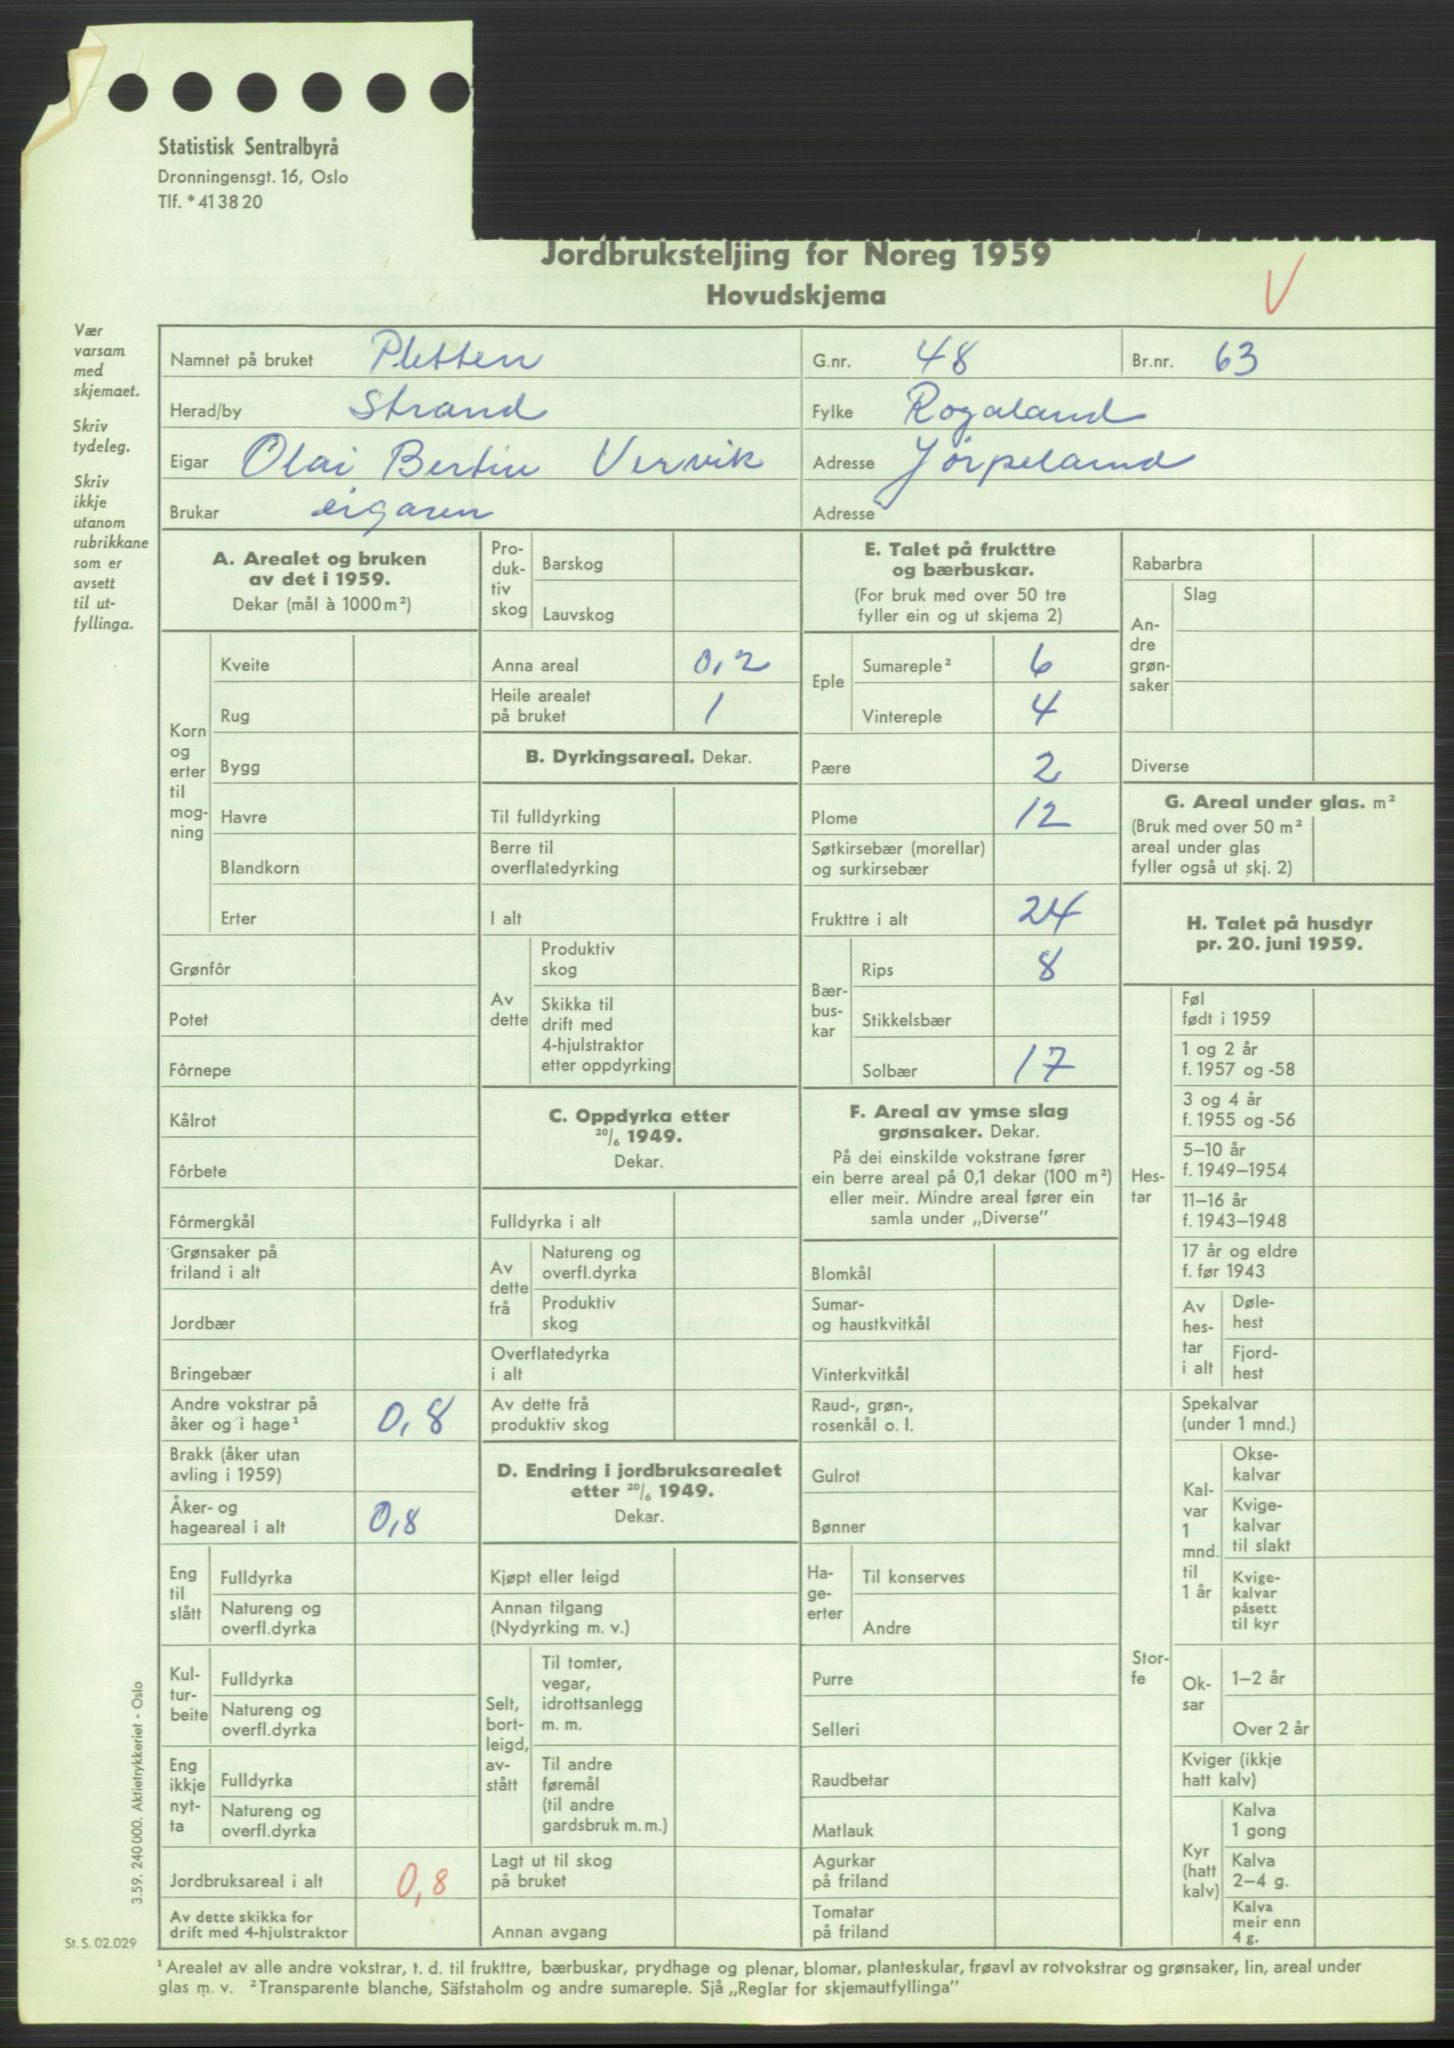 Statistisk Sentralbyrå
Dronningensgt. 16, Oslo
Tlf. * 41 38 20
Jordbruksteljing for Noreg 1959
Hovudskjema
V
Vær
varsam
med
skjemaet.
Skriv
tydeleg.
Skriv
ikkje
utanom
rubrikkane
som er
avsett
til ut-
fyllinga.
Namnet på bruket Pletten G.nr. 48 Br.nr. 63
Herad/by Strand Fylke Rogaland
Eigar Olai Bertin Vervik Adresse Jørpeland
Brukar eigaren Adresse
A. Arealet og bruken
av det i 1959.
Dekar (mål à 1000 m²)
Korn
og
erter
til
mog-
ning
Kveite
Rug
Bygg
Havre
Blandkorn
Erter
Grønfôr
Potet
Fôrnepe
Kålrot
Fôrbete
Fôrmergkål
Grønsaker på
friland i alt
Jordbær
Bringebær
Andre vokstrar på
åker og i hage¹ 0,8
Brakk (åker utan
avling i 1959)
Åker- og
hageareal i alt 0,8
Eng
til
slått
Fulldyrka
Natureng og
overfl.dyrka
Kul-
tur-
beite
Fulldyrka
Natureng og
overfl.dyrka
Eng
ikkje
nyt-
ta
Fulldyrka
Natureng og
overfl.dyrka
Jordbruksareal i alt 0,8
Av dette skikka for
drift med 4-hjulstraktor
Pro-
duk-
tiv
skog
Barskog
Lauvskog
Anna areal 0,2
Heile arealet
på bruket 1
B. Dyrkingsareal. Dekar.
Til fulldyrking
Berre til
overflatedyrking
I alt
Av
dette
Produktiv
skog
Skikka til
drift med
4-hjulstraktor
etter oppdyrking
C. Oppdyrka etter
20/6 1949.
Dekar.
Fulldyrka i alt
Av
dette
frå
Natureng og
overfl.dyrka
Produktiv
skog
Overflatedyrka
i alt
Av dette frå
produktiv skog
D. Endring i jordbruksarealet
etter 20/6 1949.
Dekar.
Kjøpt eller leigd
Annan tilgang
(Nydyrking m. v.)
Selt,
bort-
leigd,
av-
stått
Til tomter,
vegar,
idrottsanlegg
m. m.
Til andre
føremål
(til andre
gardsbruk m. m.)
Lagt ut til skog
på bruket
Annan avgang
E. Talet på frukttre
og bærbuskar.
(For bruk med over 50 tre
fyller ein og ut skjema 2)
Eple
Sumareple² 6
Vintereple 4
Pære 2
Plome 12
Søtkirsebær (morellar)
og surkirsebær
Frukttre i alt 24
Bær-
bus-
kar
Rips 8
Stikkelsbær
Solbær 17
F. Areal av ymse slag
grønsaker. Dekar.
På dei einskilde vokstrane fører
ein berre areal på 0,1 dekar (100 m²)
eller meir. Mindre areal fører ein
samla under „Diverse”
Blomkål
Sumar-
og haustkvitkål
Vinterkvitkål
Raud-, grøn-,
rosenkål o. l.
Gulrot
Bønner
Ha-
ge-
erter
Til konserves
Andre
Purre
Selleri
Raudbetar
Matlauk
Agurkar
på friland
Tomatar
på friland
Rabarbra
An-
dre
grøn-
saker
Slag
Diverse
G. Areal under glas. m²
(Bruk med over 50 m²
areal under glas
fyller også ut skj. 2)
H. Talet på husdyr
pr. 20. juni 1959.
Hes-
tar
Føl
født i 1959
1 og 2 år
f. 1957 og -58
3 og 4 år
f. 1955 og -56
5–10 år
f. 1949–1954
11–16 år
f. 1943–1948
17 år og eldre
f. før 1943
Av
hes-
tar
i alt
Døle-
hest
Fjord-
hest
Stor-
fe
Spekalvar
(under 1 mnd.)
Kal-
var
1
mnd.
til
1 år
Okse-
kalvar
Kvige-
kalvar
til slakt
Kvige-
kalvar
påsett
til kyr
Ok-
sar
1–2 år
Over 2 år
Kviger (ikkje
hatt kalv)
Kyr
(hatt
kalv)
Kalva
1 gong
Kalva
2–4 g.
Kalva
meir enn
4 g.
3.59. 240 000. Aktietrykkeriet - Oslo
St. S. 02.029
¹ Arealet av alle andre vokstrar, t. d. til frukttre, bærbuskar, prydhage og plenar, blomar, planteskular, frøavl av rotvokstrar og grønsaker, lin, areal under
glas m. v. ² Transparente blanche, Säfstaholm og andre sumareple. Sjå „Reglar for skjemautfyllinga”